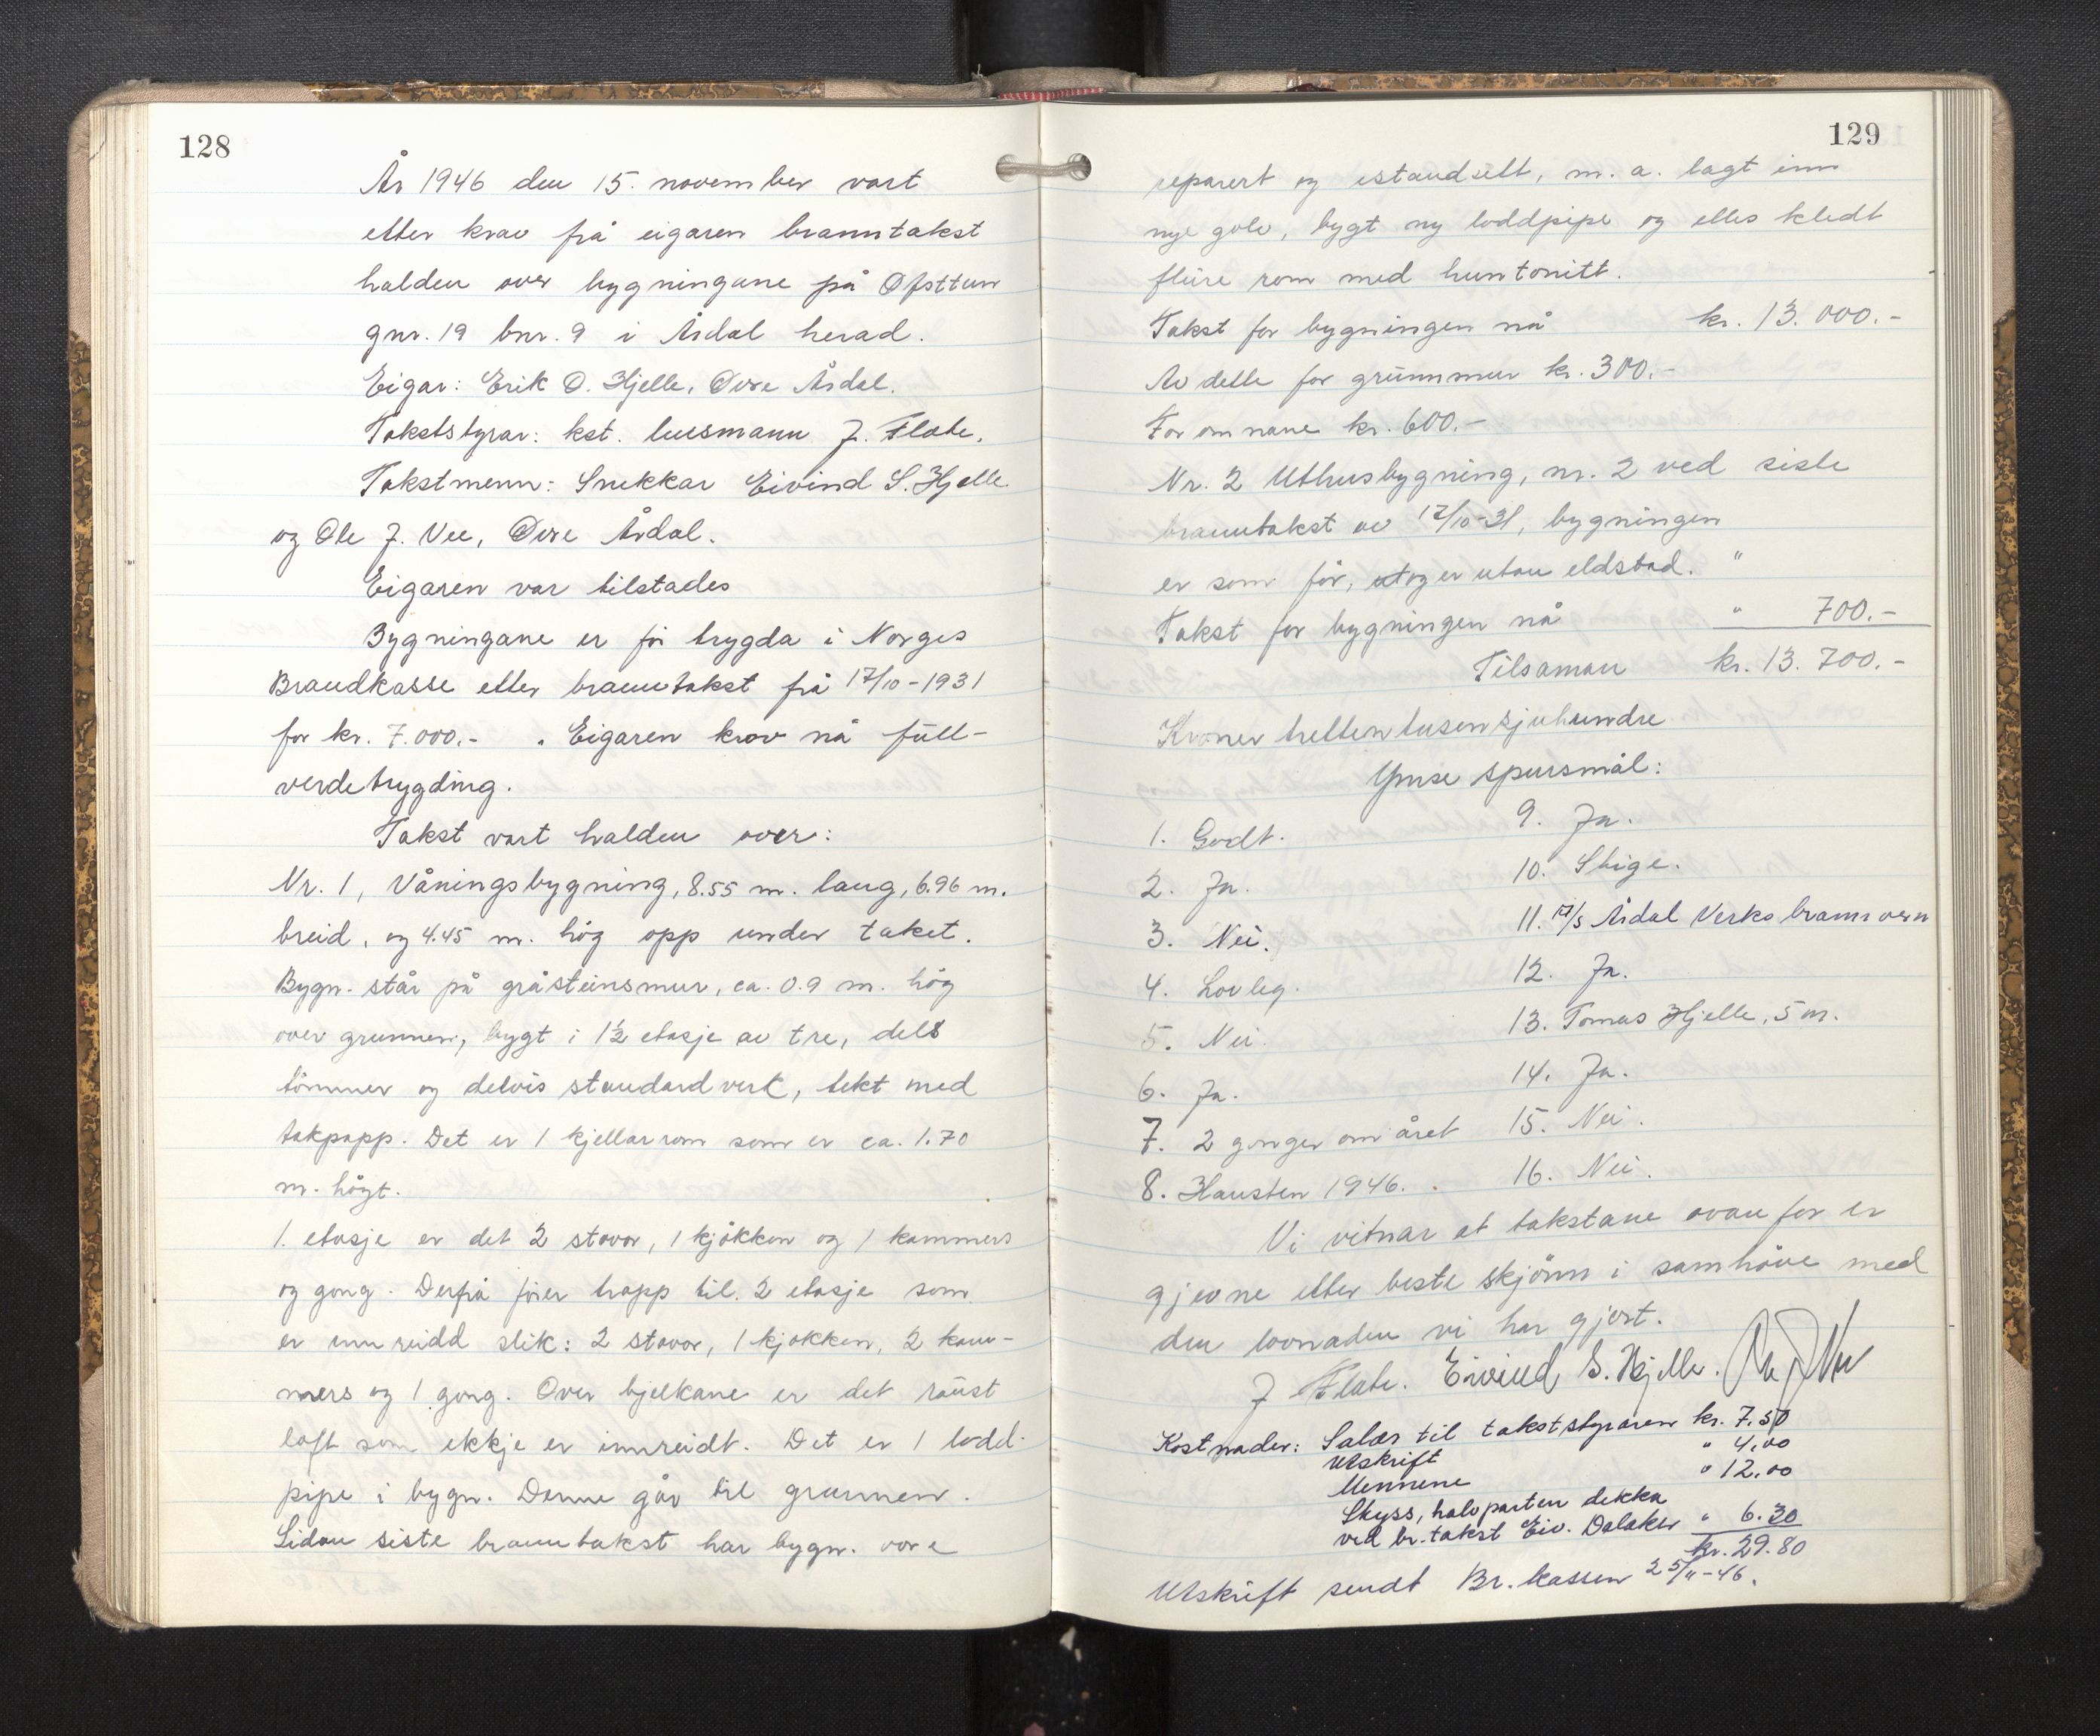 128
År 1946 den 15. november vart
etter krav frå eigaren branntakst
halden over bygningane på Ofsttun
gnr. 19 bnr. 9 i Årdal herad.
Eigar: Erik O. Hjelle, Øvre Årdal.
Takststyrar: kst. lensmann J. Flate.
Takstmenn: Snekkar Eivind S. Hjelle
og Ole J. Vee, Øvre Årdal.
Eigaren var tilstades
Bygningane er för trygda i Norges
Brandkasse etter branntakst frå 17/10-1931
for kr. 7.000.- . Eigaren krov nå full-
verdetrygding.
Takst vart halden over:
Nr. 1, Våningsbygning, 8.55 m. lang, 6.96 m.
breid, og 4.45 m. hög opp under taket.
Bygn. står på gråsteinsmur, ca. 0.9 m. hög
over grunnen, bygt i 1½ etasje av tre, dels
tömmer og delvis standardverk, tekt med
takpapp. Det er 1 kjellarrom som er ca. 1.70
m. högt.
1. etasje er det 2 stovor, 1 kjökken og 1 kammers
og gong. Derfrå förer trapp til 2 etasje som
er innreidd slik: 2 stovor, 1 kjökken, 2 kam-
mers og 1 gong. Over bjelkane er det röust
loft som ikkje er innreidt. Det er 1 lodd-
pipe i bygn. Denne går til grunnen.
Sidan siste branntakst har bygn. vore
129
reparert og istandsett, m. a. lagt inn
nye golv, bygt ny loddpipe og elles kledt
fleire rom med huntonitt.
Takst for bygningen nå kr. 13.000.-
Av dette for grunnmur kr. 300.-
For omnane kr. 600.-
Nr. 2 Uthusbygning, nr. 2 ved siste
branntakst av 17/10-31, bygningen
er som för, og er utan eldstad. "
Takst for bygningen nå " 700.-
Tilsaman kr. 13.700.-
Kroner trettentusensjuhundre
Ymse spursmål:
1. Godt. 9. Ja.
2. Ja. 10. Stige.
3. Nei. 11. 17/5 Årdal Verks brannvern
4. Lovleg. 12. Ja.
5. Nei. 13. Tomas Hjelle, 5 m.
6. Ja. 14. Ja.
7. 2 gonger om året 15. Nei.
8. Hausten 1946. 16. Nei.
Vi vitnar at takstane ovanfor er
gjevne etter beste skjönn i samhöve med
den lovnaden vi har gjort.
J Flate. Eivind S. Hjelle. Ole J Vee
Kostnader: Salær til takststyraren kr. 7.50
Utskrift " 4.00
Mennene " 12.00
Skyss, halvparten dekka
ved br.takst Eiv. Dalaker " 6.30
kr. 29.80
Utskrift sendt Br.kassen 25/11-46.